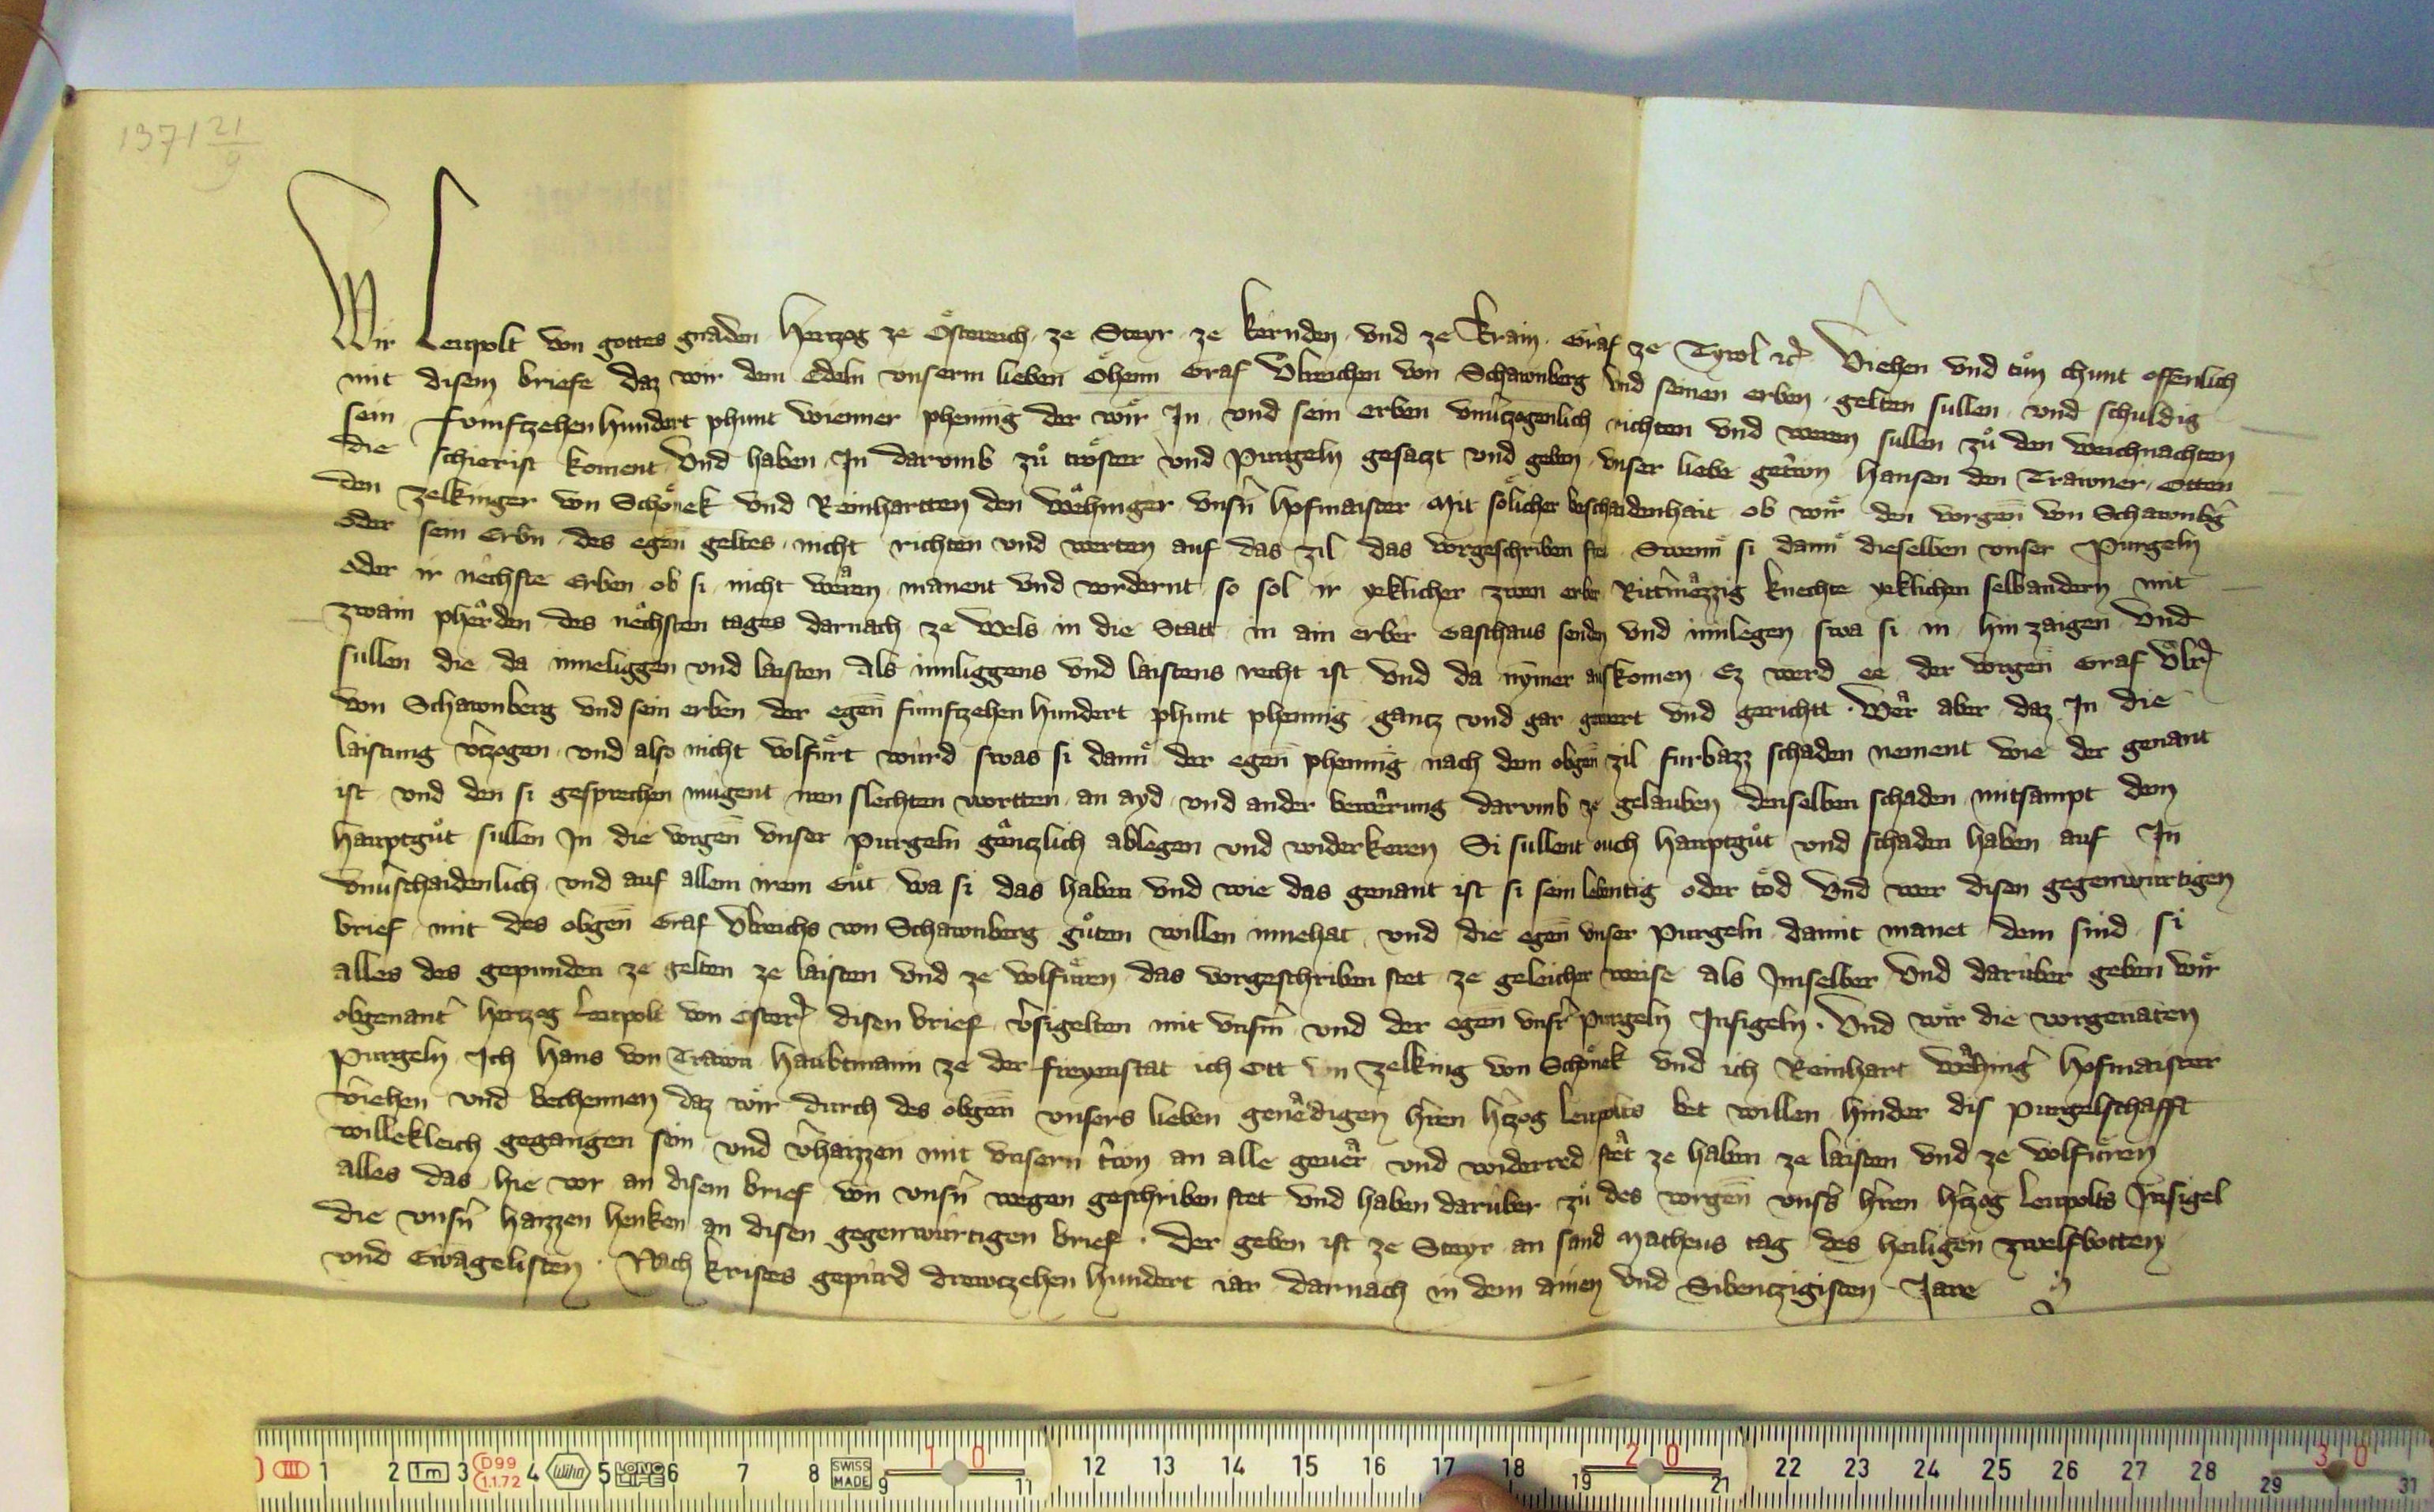 1371 21/9
Wir Leupolt von gottes gnaden Hertzog ze Österreich ze Steyr ze kërnden vnd ze krain Graf ze Tyrol etc̃ Viehen vnd tůn chunt offenlich
mit disem briefe daz wir dem Edeln vnserm lieben Öhem Graf Ülreichen von Schawnberg vnd seinen erben gelten sullen vnd schuldig
sein fünftzehenhundert phunt wienner phenning der wir In vnd sein erben vnu̾czogenlich richten vnd weren sullen zů den weichnachten
die schierist koment Vnd haben In darumb zů tröster vnd Purgeln gesaczt vnd geben vnser liebe getr̃wn hansen den Trawner Otten
den zelkinger von Schönek vnd Reinhartten den wêhinger vnsn̾ hofmaister Mit sölicher beschaidenhait ob wir den vorgen̄ von Schawnbg̾
oder sein Erbn̄ des egen̄ geltes nicht richten vnd werten auf das zil das vorgeschriben stet Swenn si dann dieselben vnser Purgeln
oder ir nêchste Erben ob si nicht wêren manent vnd vordernt so sol ir yeklicher zwen erber Rittm̾êzzig knechte yeklichen selbandern mit
zwain phêrden des nêchsten tages darnach ze Wels in die Statt in ain erber Gasthaus senden vnd innlegen swa si in hin zaigen Vnd
sullen die da inneliggen vnd laisten Als innliggens vnd laistens recht ist vnd da nymer auskomen Ez werd ee der vorgen̄ Graf Ülr̃
von Schawnberg vnd sein erben der egen̄ fünftzehenhundert phunt phennig gantz vnd gar gewert vnd gerichtt Wêr aber daz In die
laistung v̾czogen vnd also nicht volfürt würd swas si dann der egen̄ phennig nach dem obgen̄ zil furbazz schaden nement wie der genant
ist vnd den si gesprechen mügent iren slechten wortten an ayd vnd ander bewêrung darumb ze gelauben denselben schaden mitsampt dem
hauptgůt sullen In die vorgen̄ vnser Purgeln gênczlich ablegen vnd widerkeren Si sullent ouch hauptgůt vnd schaden haben auf In
vnu̾schaidenlich vnd auf allem irem Gůt wa si das haben vnd wie das genant ist si sein lebentig oder tod Vnd wer disen gegenwürtigen
brief mit des obgen̄ Graf Ülreichs von Schawnberg gůtem willen innehat vnd die egen̄ vnser Purgeln damit manet dem sind si
alles des gepunden ze gelten ze laisten vnd ze volfüren das vorgeschriben stet ze geleicher weise als Imselber Vnd darüber geben wir
obgenant̾ hertzog Leupolt von Österr̃ disen brief v̾sigelten mit vnsm̾ vnd der egen̄ vnsr̾ purgeln Insigeln Vnd wir die vorgenāten
Purgeln Ich hans von Trawn haubtmann ze der freyenstat ich Ott von zelking von Schönek vnd ich Reinhart wêhing̾ hofmaister
v̾iehen vnd bechennen daz wir durch des obgen̄ vnsers lieben genêdigen hr̾en hr̾czog Leupolts bet willen hinder dis purgelschafft
willekleich gegangen sein vnd v̾haizzen mit vnsern tr̾wn an alle geuêr vnd widerred stêt ze haben ze laisten vnd ze volfüren
alles das hie vor an disem brief von vnsn̾ wegen geschriben stet vnd haben darüber zů des vorgen̄ vnsꝰs hr̾en hr̾czog Leupolts Insigel
die vnsn̾ haizzen henken an disen gegenwürtigen brief Der geben ist ze Steyr an sand Matheus tag des heiligen zwelfbotten
vnd Ewāgelisten Nach kristes gepürd drewtzehenhundert iar darnach in dem ainen vnd Sibentzigisten Jare
1 2 1m 3 D99 1.1.72 4 wiha 5 LONG LIFE 6 7 8 SWISS MADE 9 10 11 12 13 14 15 16 17 18 19 20 21 22 23 24 25 26 27 28 29 30 31